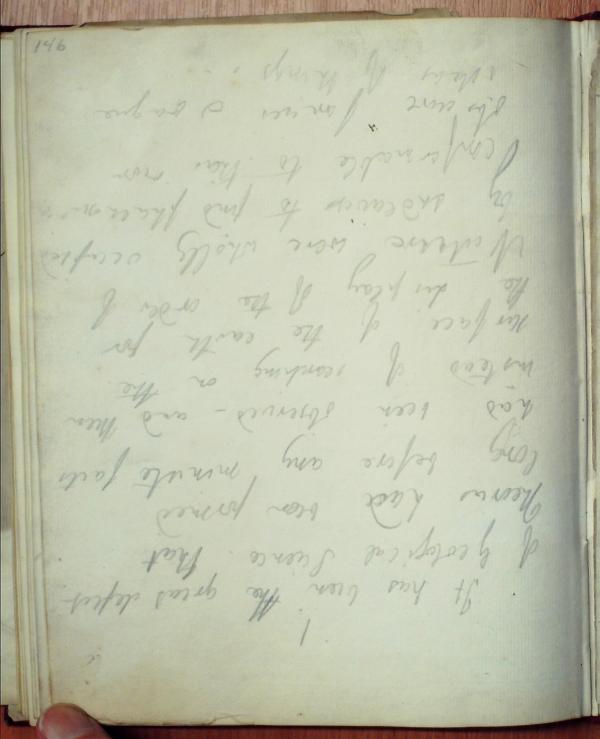 146
1
It has been the great defect
of Geological Science that
Theories had been formed
long before any minute facts
had been observed - and then
instead of searching on the
surface of the earth for
the display of the order of
Nature were wholly occupied
by endeavors to find phaenomena
conformable to their own
obscure fancies & vague
ideas of things.